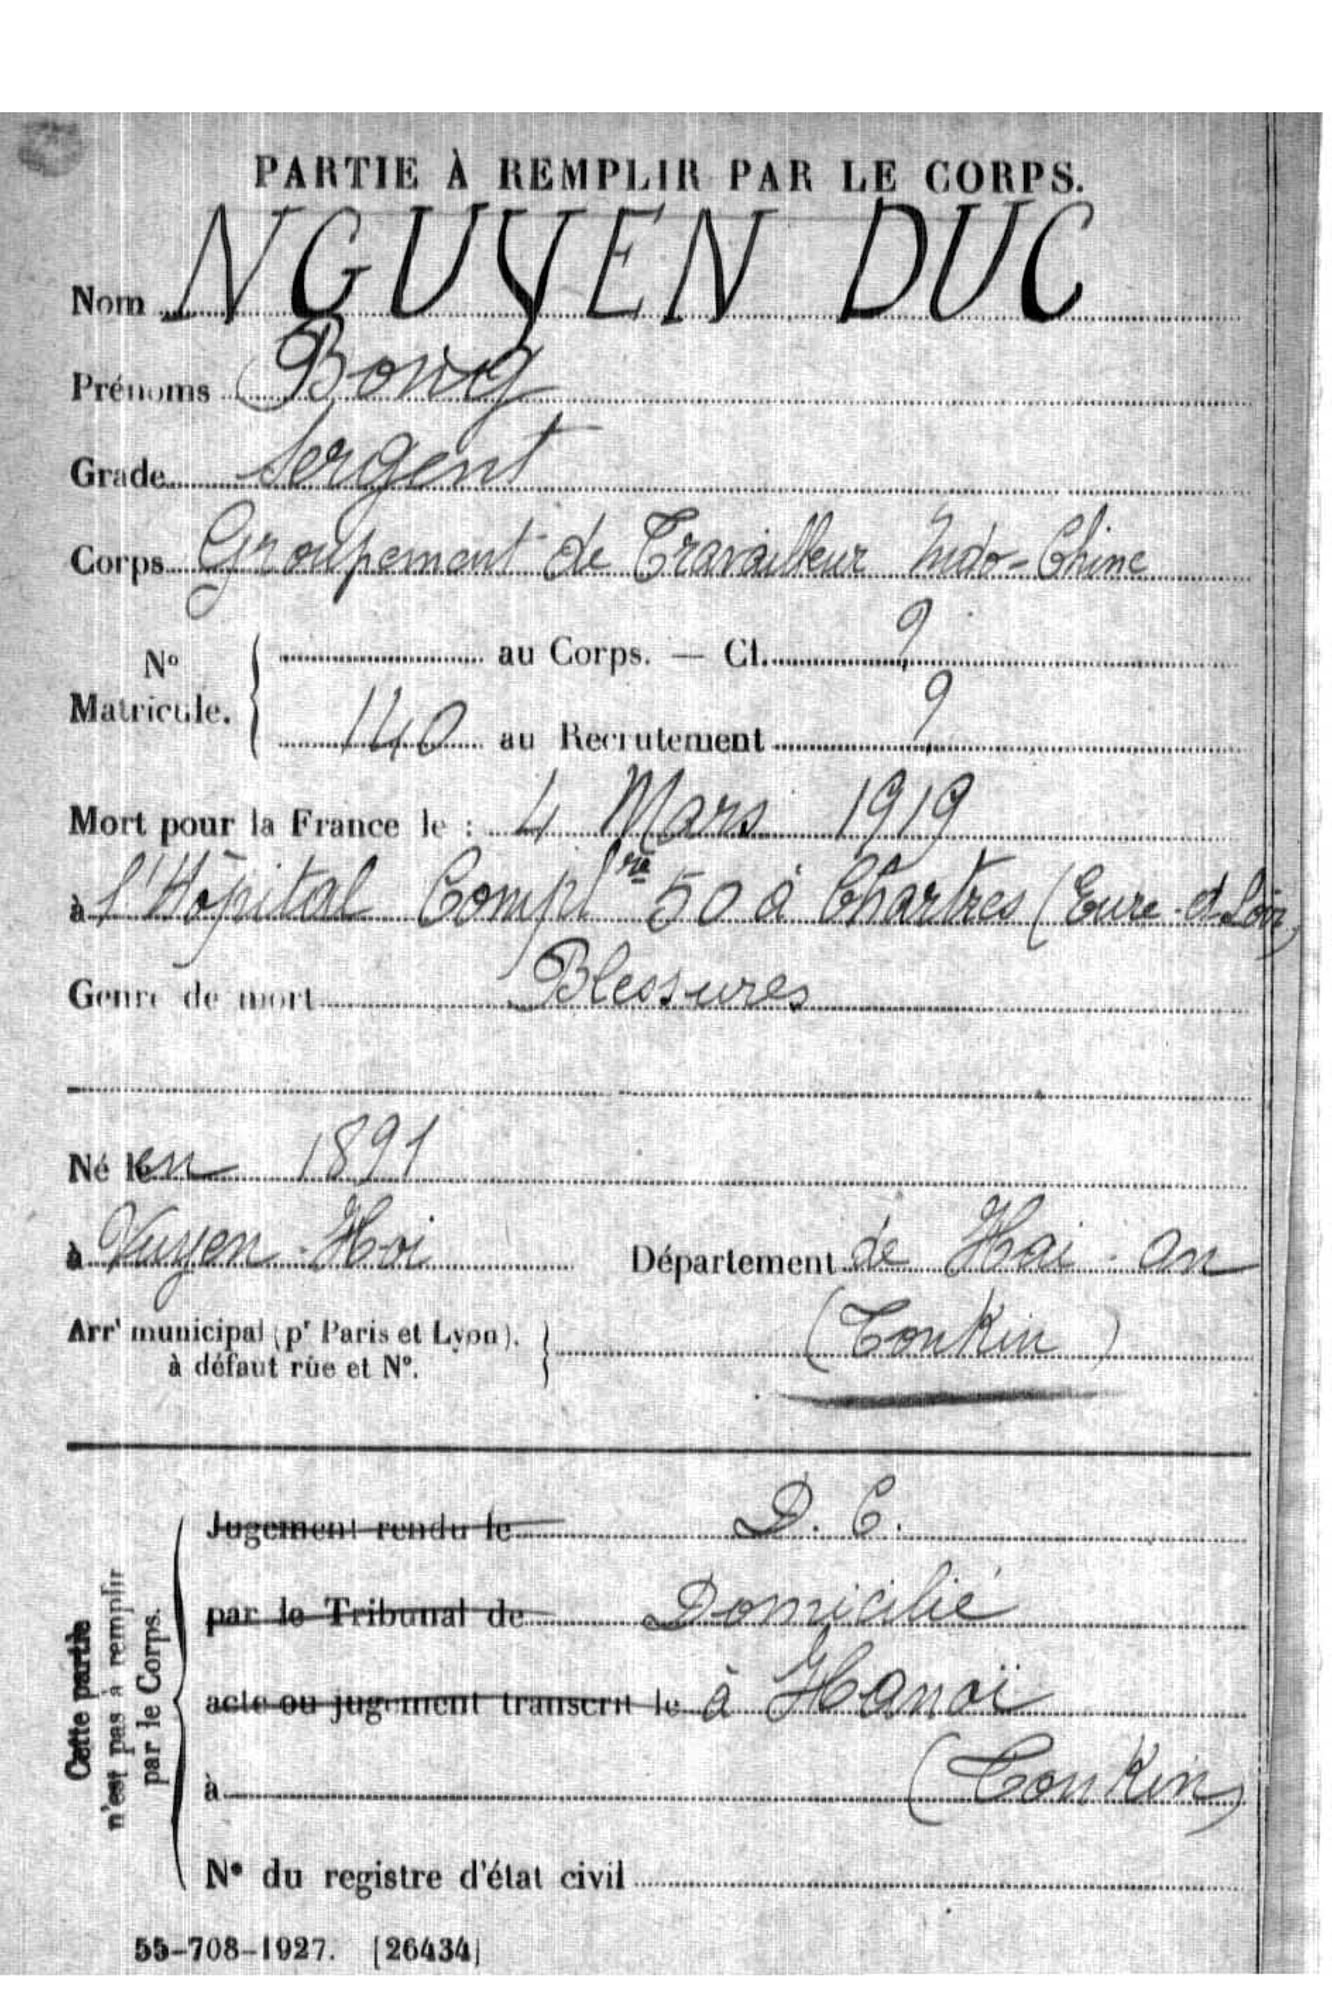 PARTIE À REMPLIR PAR LE CORPS.
Nom NGUYEN DUC
Prénoms Bong
Grade Sergent
Corps Groupement de Travailleur Indo-Chine
N° Matricule. { au Corps. — Cl. ?
140 au Recrutement ?
Mort pour la France le : 4 Mars 1919
à l'Hôpital Compl re 50 à Chartres (Eure-et-Loir)
Genre de mort Blessures
Né le en 1891
à Vuyen-Hoi Département de Hai-An
Arrt municipal (pr Paris et Lyon), à défaut rue et N°. } (Tonkin)
Cette partie n'est pas à remplir par le Corps.
Jugement rendu le D. C.
par le Tribunal de Domicilié
acte ou jugement transcrit le à Hanoï
à (Tonkin)
N° du registre d'état civil
55-708-1927. [26434]